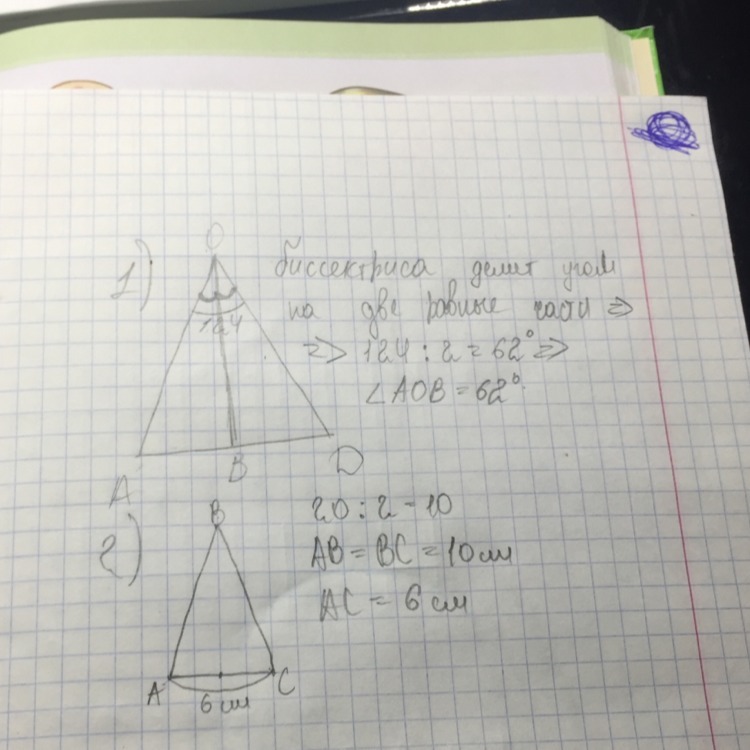 1)
O
124
A
B
D
биссектриса делит угол
на две равные части =>
=> 124 : 2 = 62° =>
∠AOB = 62°.
2)
B
A
C
6 см
20 : 2 - 10
AB = BC = 10 см
AC = 6 см